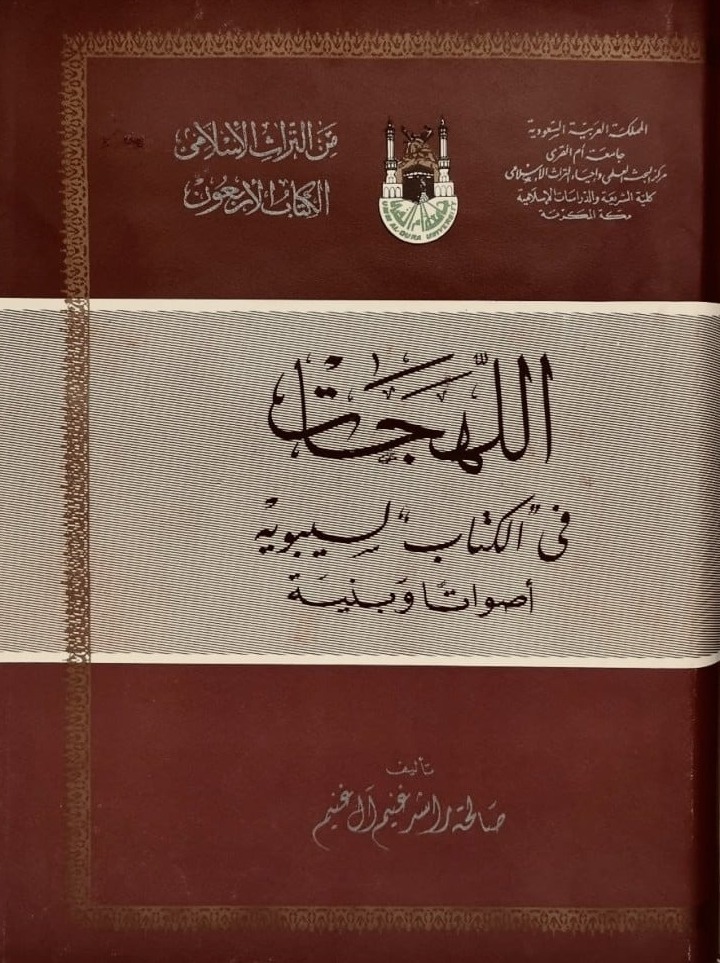 المملكة العربية السعودية
جامعة أم القرى
مركز البحث العلمي وإحياء التراث الإسلامي
كلية الشريعة والدراسات الإسلامية
مكة المكرمة
جامعة أم القرى
UMM AL-QURA UNIVERSITY
من التراث الإسلامي
الكتاب الأربعون
اللهجات
في "الكتاب" لسيبويه
أصواتًا وبنية
تأليف
صالحة راشد غنيم آل غنيم